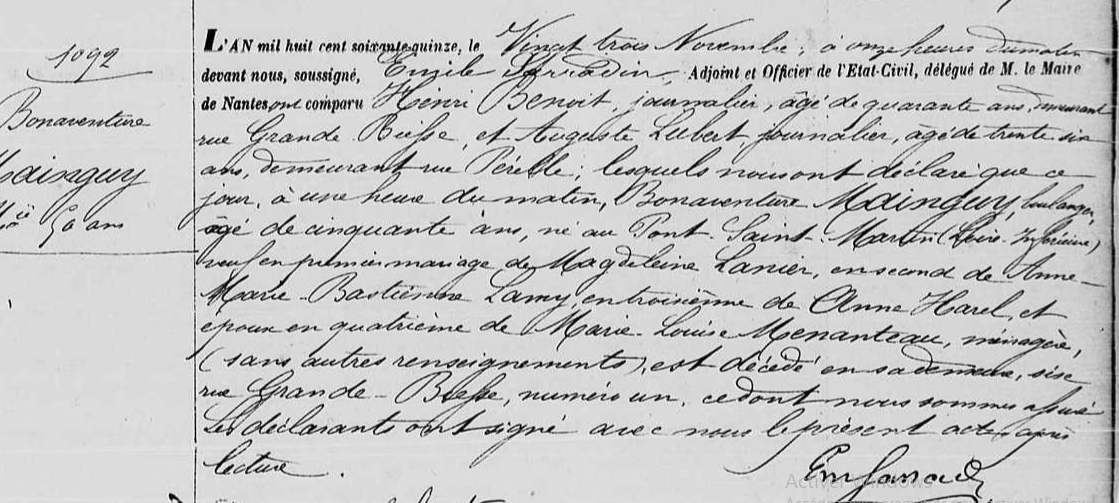 1092
Bonaventure
Mainguy
50 ans
L'AN mil huit cent soixante-quinze, le Vingt trois Novembre, à onze heures du matin
devant nous, soussigné, Emile Sarradin, Adjoint et Officier de l'Etat-Civil, délégué de M. le Maire
de Nantes, ont comparu Henri Benoit, journalier, âgé de quarante ans, demeurant
rue Grande Biesse, et Auguste Lubert, journalier, âgé de trente six
ans, demeurant rue Perelle; lesquels nous ont déclaré que ce
jour, à une heure du matin, Bonaventure Mainguy, boulanger,
âgé de cinquante ans, né au Pont-Saint-Martin (Loire-Inférieure)
veuf en premier mariage de Magdeleine Lanier, en second de Anne-
Marie-Bastienne Lamy, en troisième de Anne Harel, et
époux en quatrième de Marie-Louise Menanteau, ménagère,
(sans autres renseignements), est décédé en sa demeure, sise
rue Grande-Biesse, numéro un, ce dont nous sommes assuré
Les déclarants ont signé avec nous le présent acte, après
lecture.